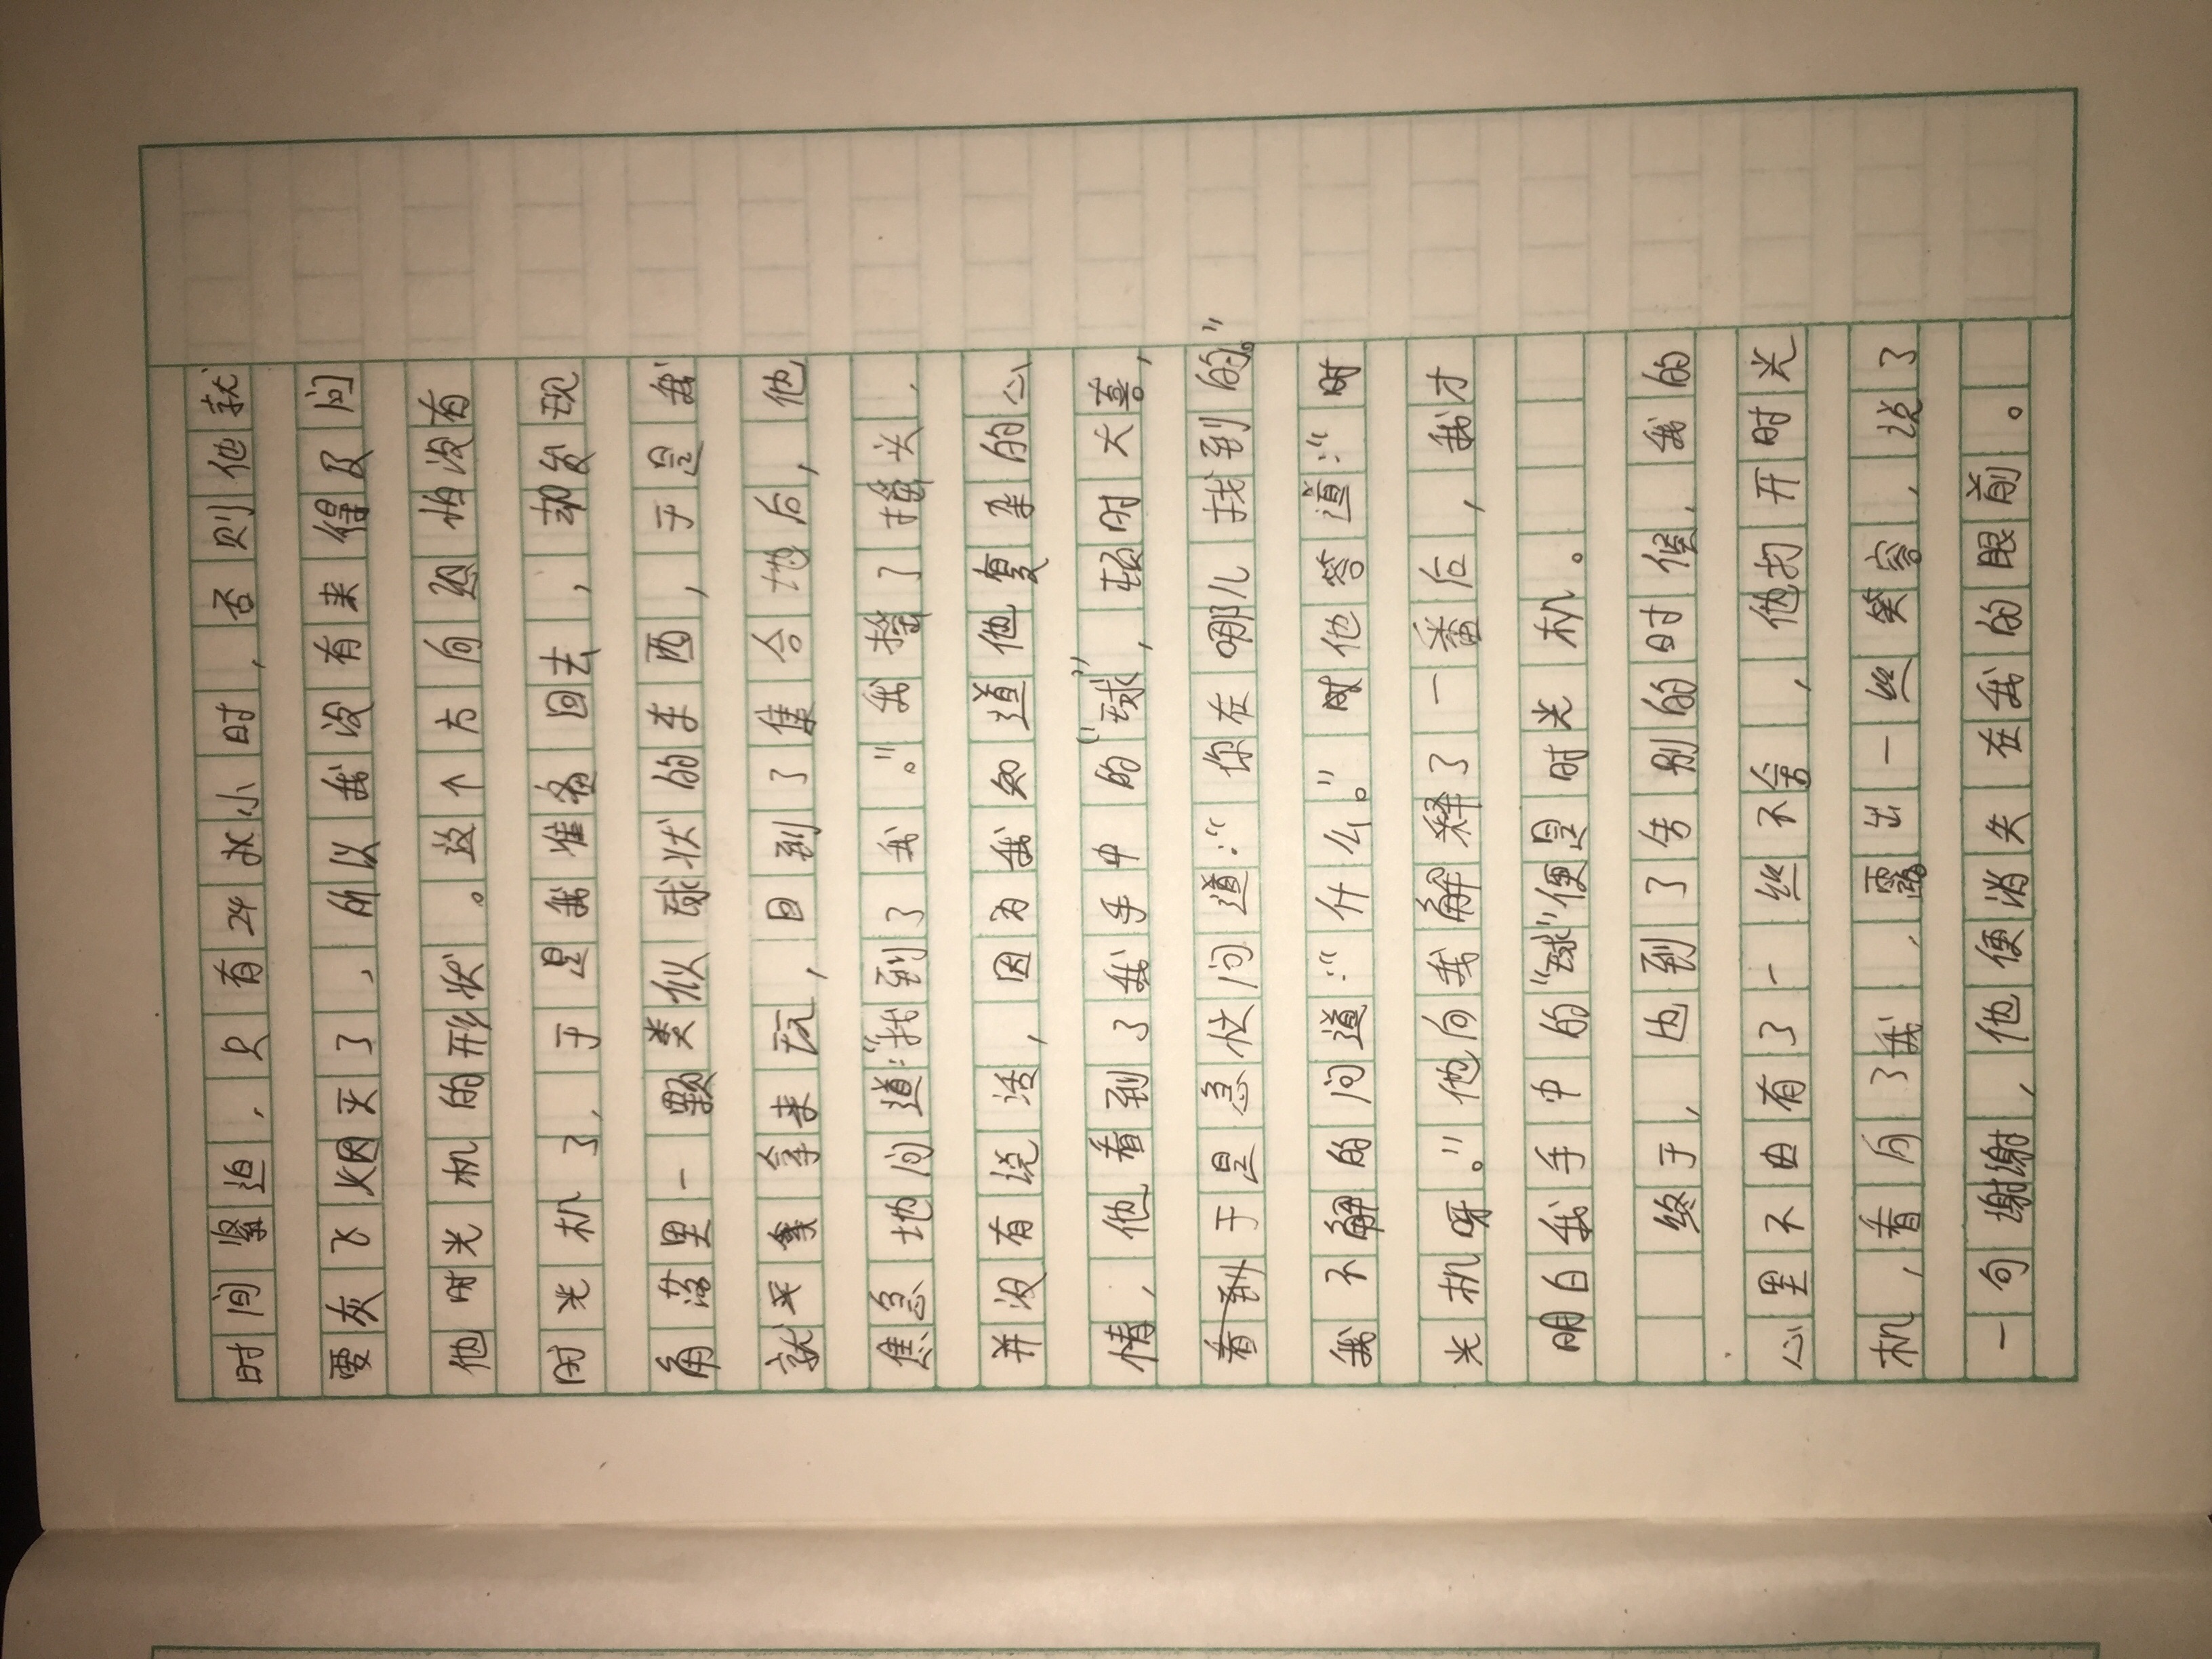 时间紧迫，只有24小时，否则他就
要灰飞烟灭了，所以我没有来得及问
他时光机的形状。这个方向恐怕没有
时光机了，于是我准备回去，却发现
角落里一颗类似球状的东西，于是我
就拿来玩，回到了集合地后，他
焦急地问道：“找到了我。”我摇了摇头，
并没有说话，因为我知道他复杂的心
情，他看到了我手中的“球”，顿时大喜，
于是急忙问道：“你在哪儿找到的。”
我不解的问道：“什么。”他答道：“时
光机呀。”他向我解释了一番后，我才
明白我手中的“球”便是时光机。
终于，也到了告别的时候，我的
心里不由有了一丝不舍，他打开时光
机，看向了我，露出一丝笑容，说了
一句谢谢，他便消失在我的眼前。